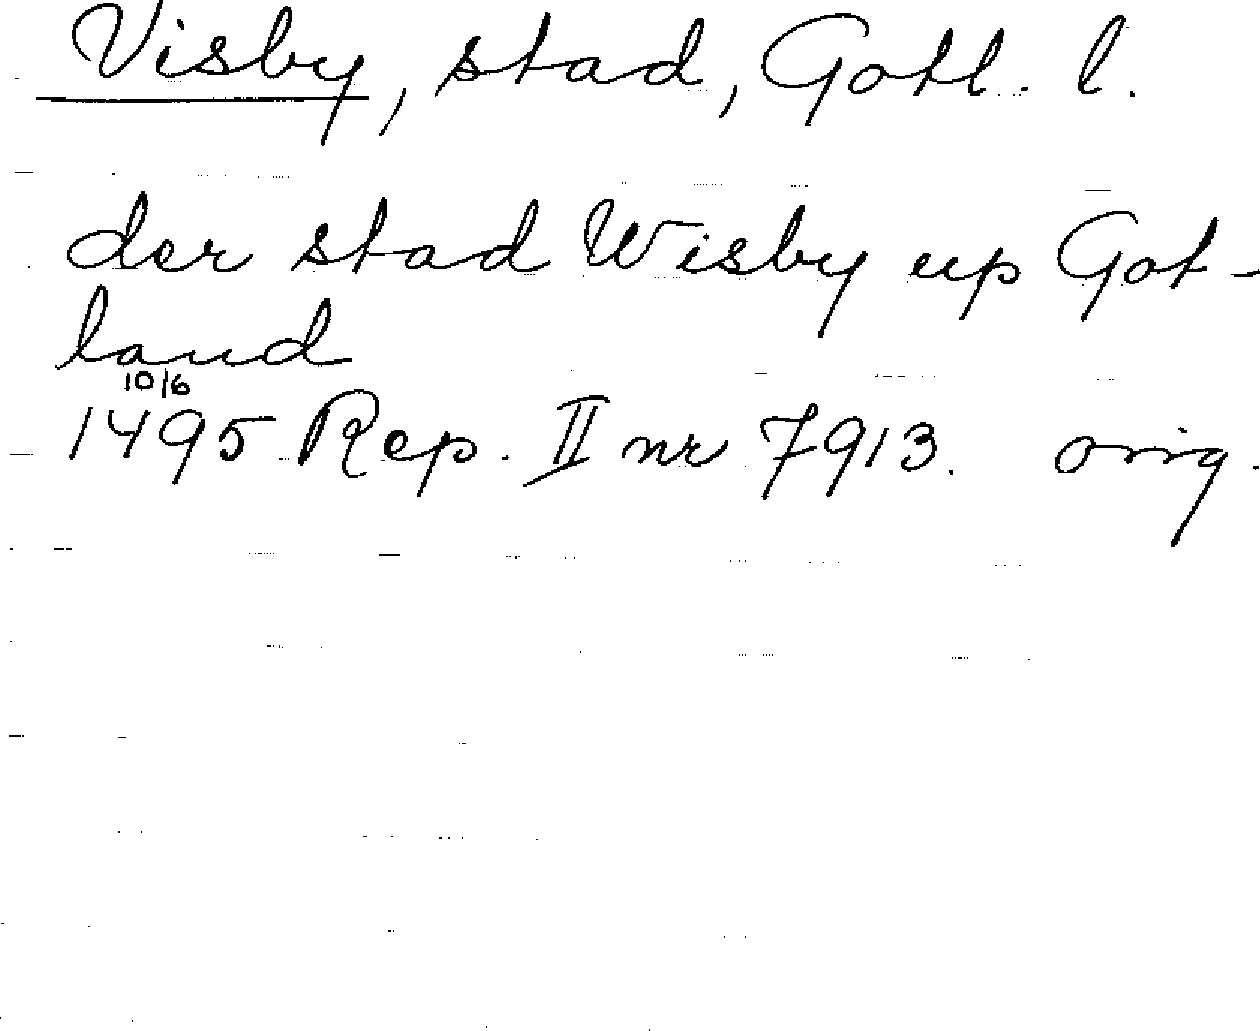 Visby, stad, Gotl. l.
der stad Wisby up Got-
land
10/6
1495 Rep. II nr 7913. orig.